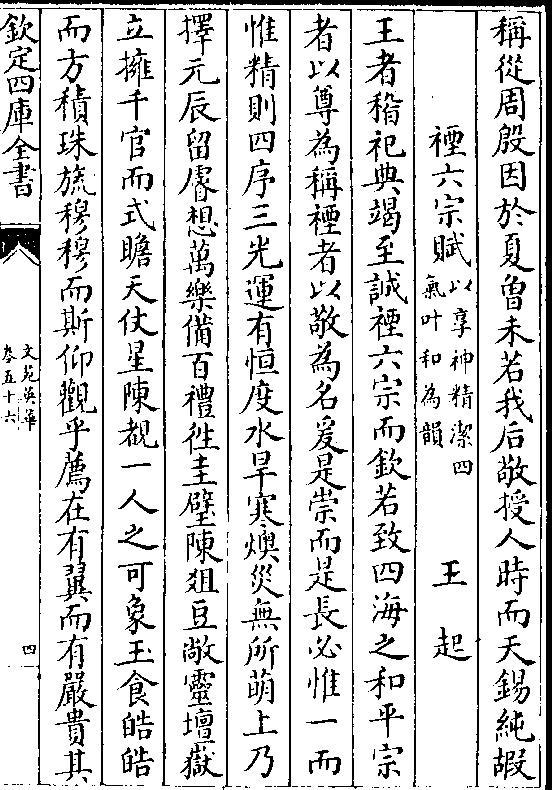 稱從周殷因於夏魯未若我后敬授人時而天錫純嘏
禋六宗賦以享神精潔四氣叶和為韻 王起
王者稽祀典竭至誠禋六宗而欽若致四海之和平宗
者以尊為稱禋者以敬為名爰是崇而是長必惟一而
惟精則四序三光運有恒度水旱寒燠災無所萌上乃
擇元辰留睿想萬樂備百禮徃圭璧陳俎豆敞靈壇嶽
立擁千官而式瞻天仗星陳覩一人之可象玉食皓皓
而方積珠旒穆穆而斯仰觀乎薦在有翼而有嚴貴其
欽定四庫全書
文苑英華
卷五十六
四